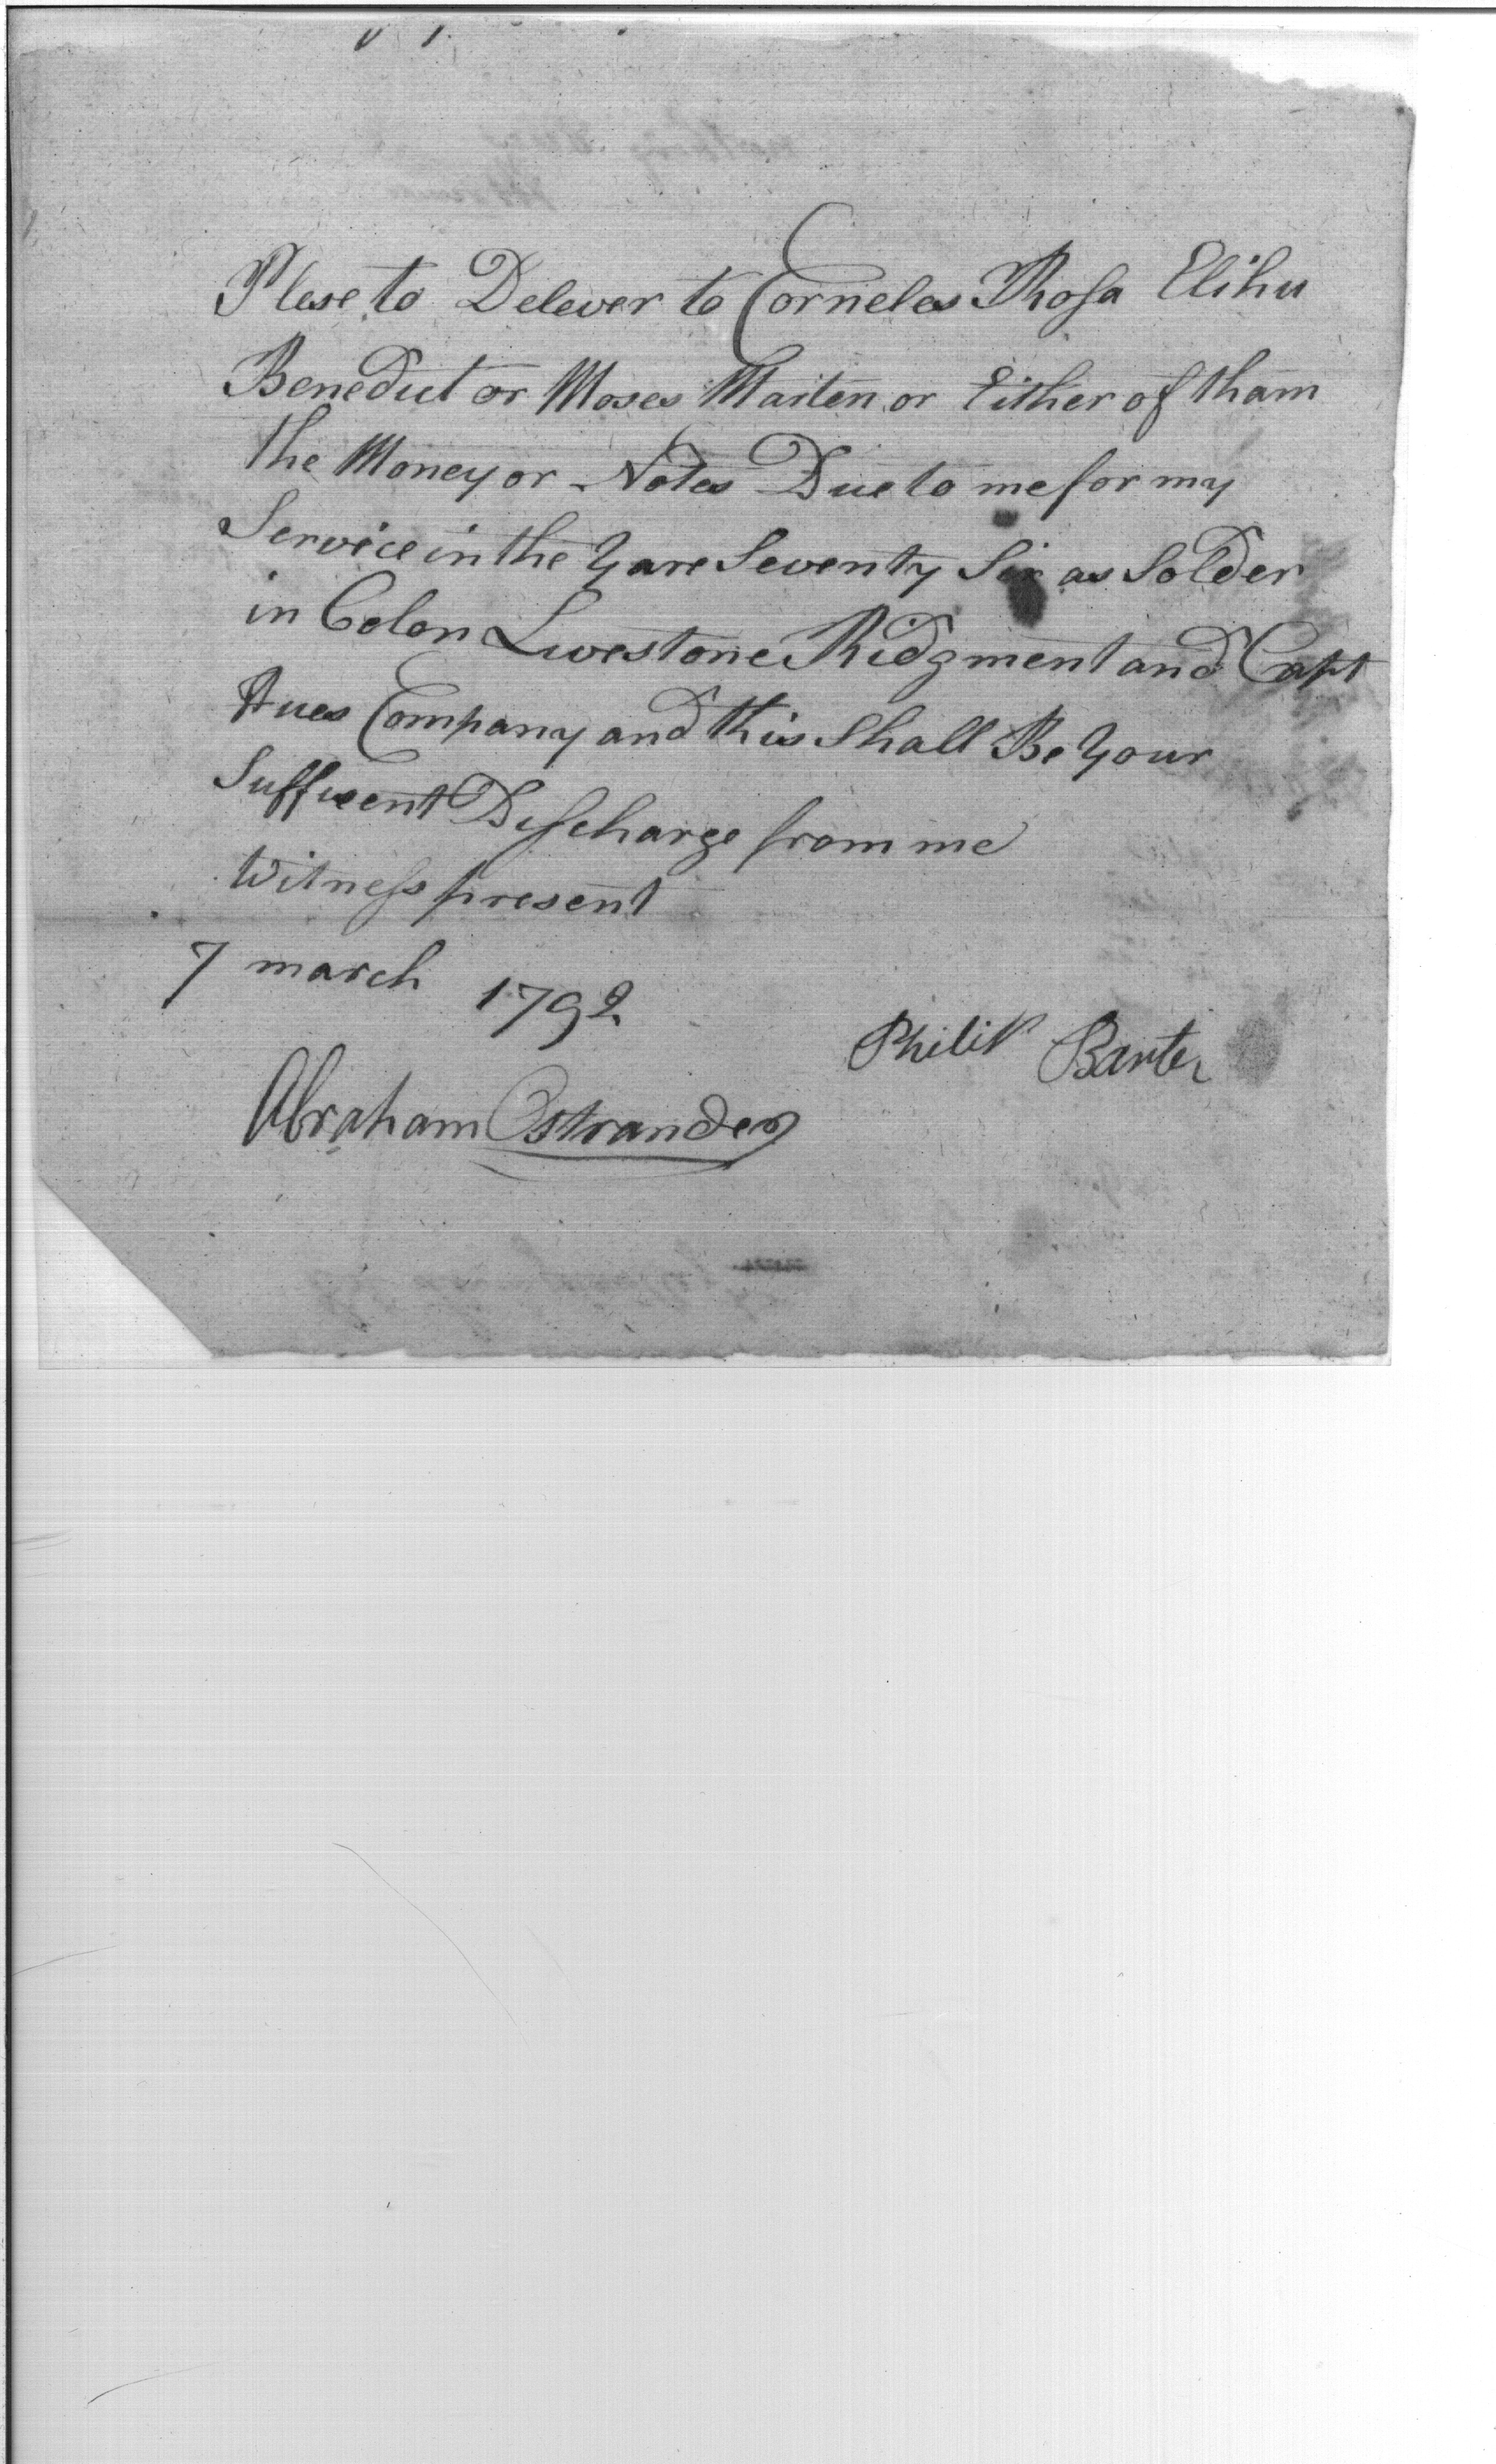 Plese to Delever to Corneles Rhosa Elihu
Benedict or Moses Marten or Either of tham
the Money or Notes Due to me for my
Service in the Yare Seventy Six as Solder
in Colon Livestone Ridgment and Capt
Company and this Shall Be Your
Suffieent Discharge from me
Witness present
7 march 1792
Philip Baxter
Abraham Ostrander